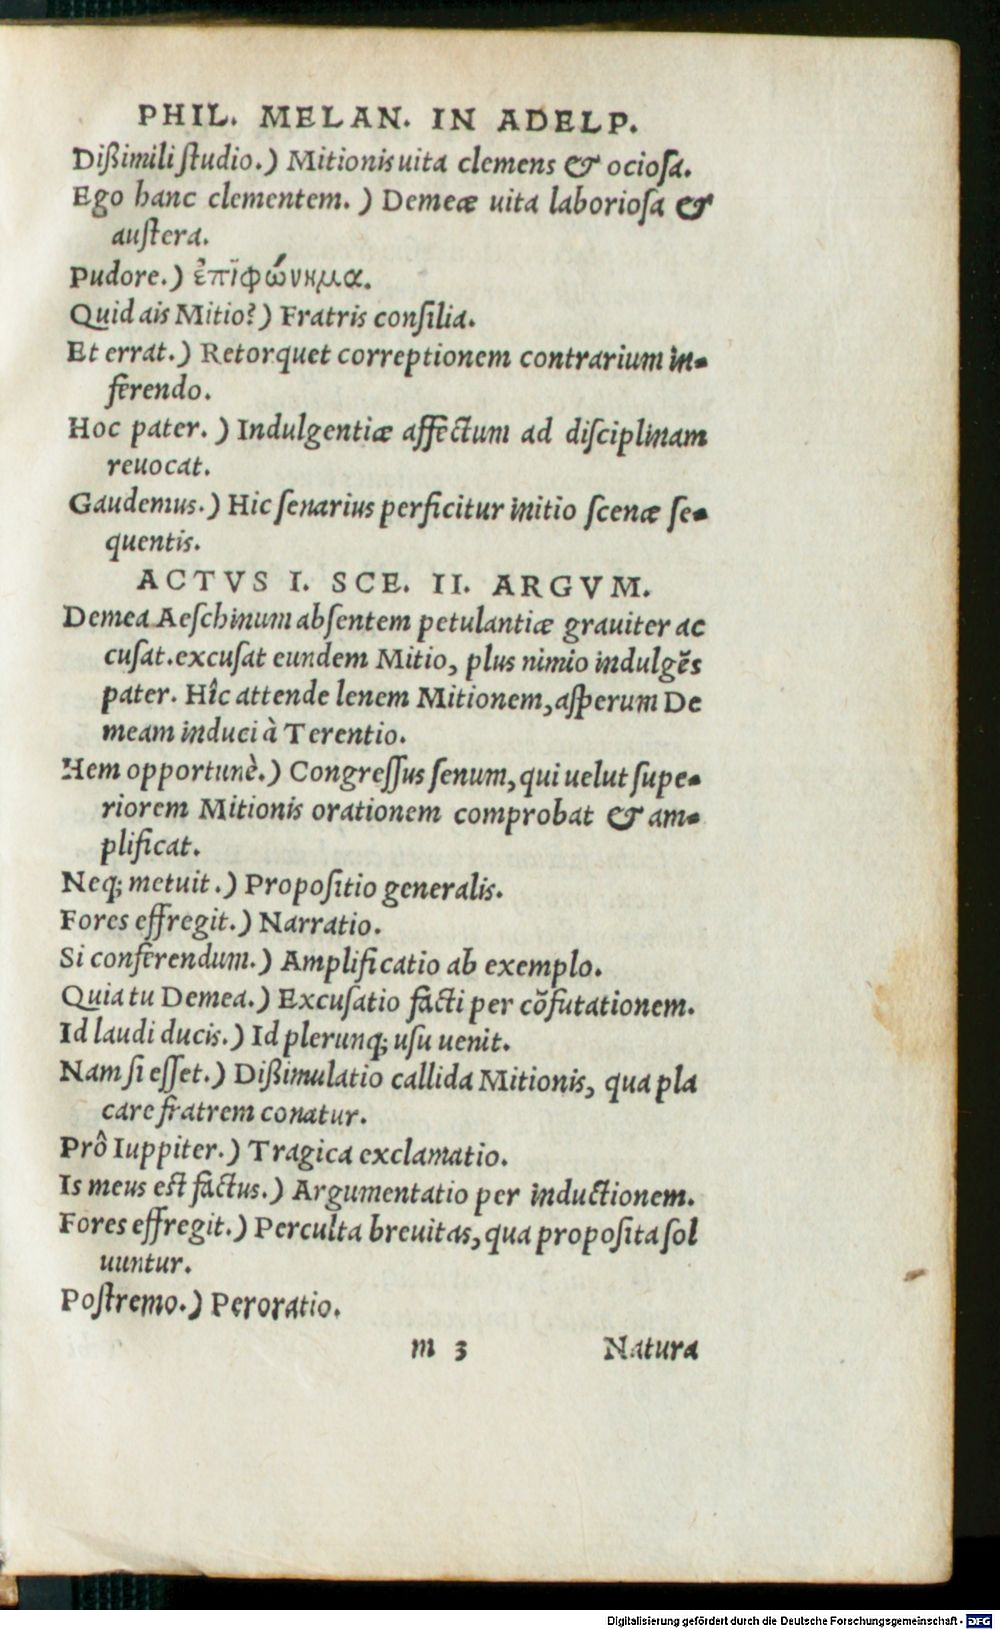 PHIL. MELAN. IN ADELP.
Dißimili ſtudio.) Mitionis uita clemens & ocioſa.
Ego hanc clementem.) Demeæ uita laborioſa &
auſtera.
Pudore.) ἐπιφώνημα.
Quid ais Mitio?) Fratris conſilia.
Et errat.) Retorquet correptionem contrarium in-
ferendo.
Hoc pater.) Indulgentiæ affectum ad diſciplinam
reuocat.
Gaudemus.) Hic ſenarius perficitur initio ſcenæ ſe-
quentis.
ACTVS I. SCE. II. ARGVM.
Demea Aeſchinum abſentem petulantiæ grauiter ac
cuſat. excuſat eundem Mitio, plus nimio indulgẽs
pater. Hîc attende lenem Mitionem, aſperum De
meam induci à Terentio.
Hem opportunè.) Congreſſus ſenum, qui uelut ſupe-
riorem Mitionis orationem comprobat & am-
plificat.
Neq; metuit.) Propoſitio generalis.
Fores effregit.) Narratio.
Si conferendum.) Amplificatio ab exemplo.
Quia tu Demea.) Excuſatio facti per cõfutationem.
Id laudi ducis.) Id plerunq; uſu uenit.
Nam ſi eſſet.) Dißimulatio callida Mitionis, qua pla
care fratrem conatur.
Prô Iuppiter.) Tragica exclamatio.
Is meus eſt factus.) Argumentatio per inductionem.
Fores effregit.) Perculta breuitas, qua propoſita ſol
uuntur.
Poſtremo.) Peroratio.
m 3 Natura
Digitalisierung gefördert durch die Deutsche Forschungsgemeinschaft - DFG